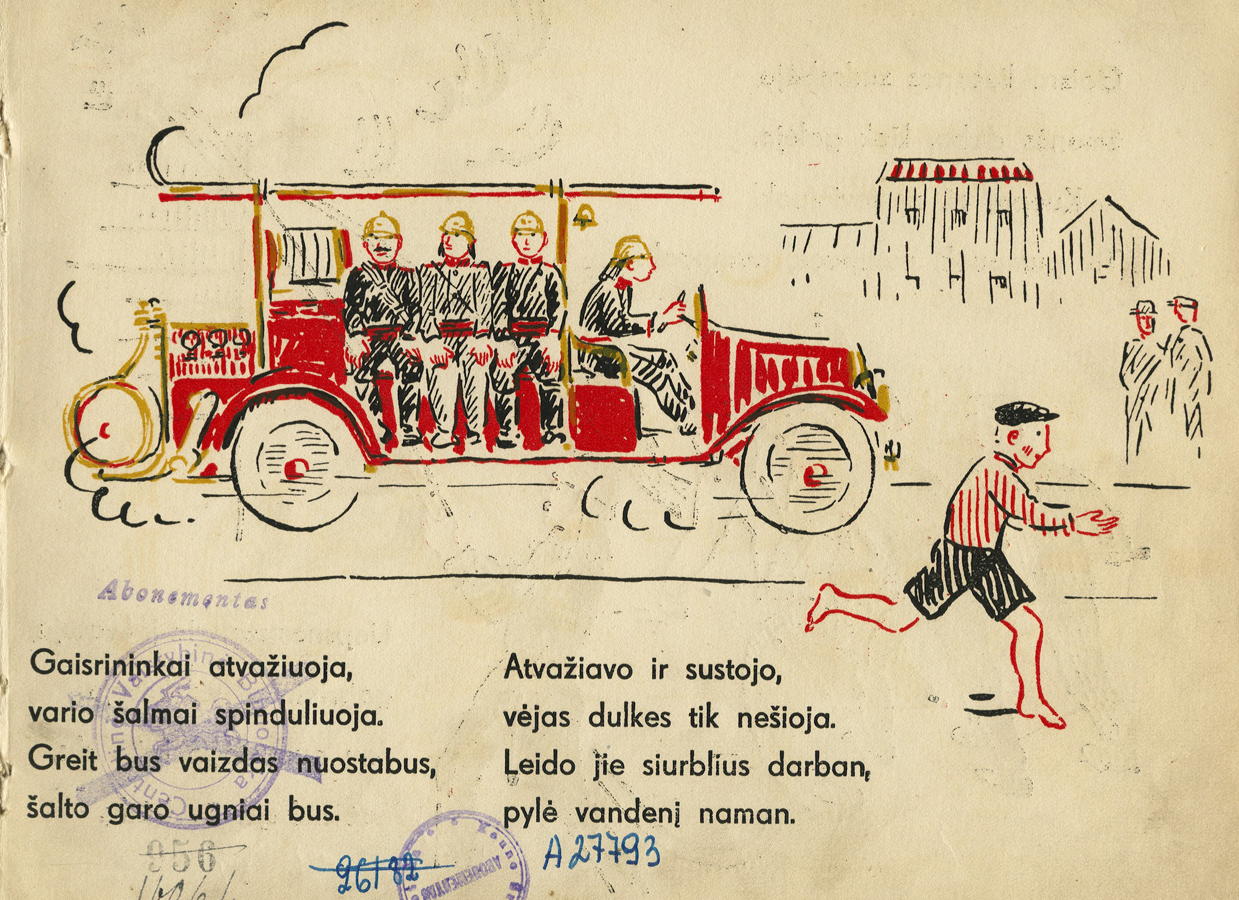 Abonementas
Gaisrininkai atvažiuoja,
vario šalmai spinduliuoja.
Greit bus vaizdas nuostabus,
šalto garo ugniai bus.
Atvažiavo ir sustojo,
vėjas dulkes tik nešioja.
Leido jie siurblius darban,
pylė vandenį naman.
956
26182
A 27793
ABONEMENTAS